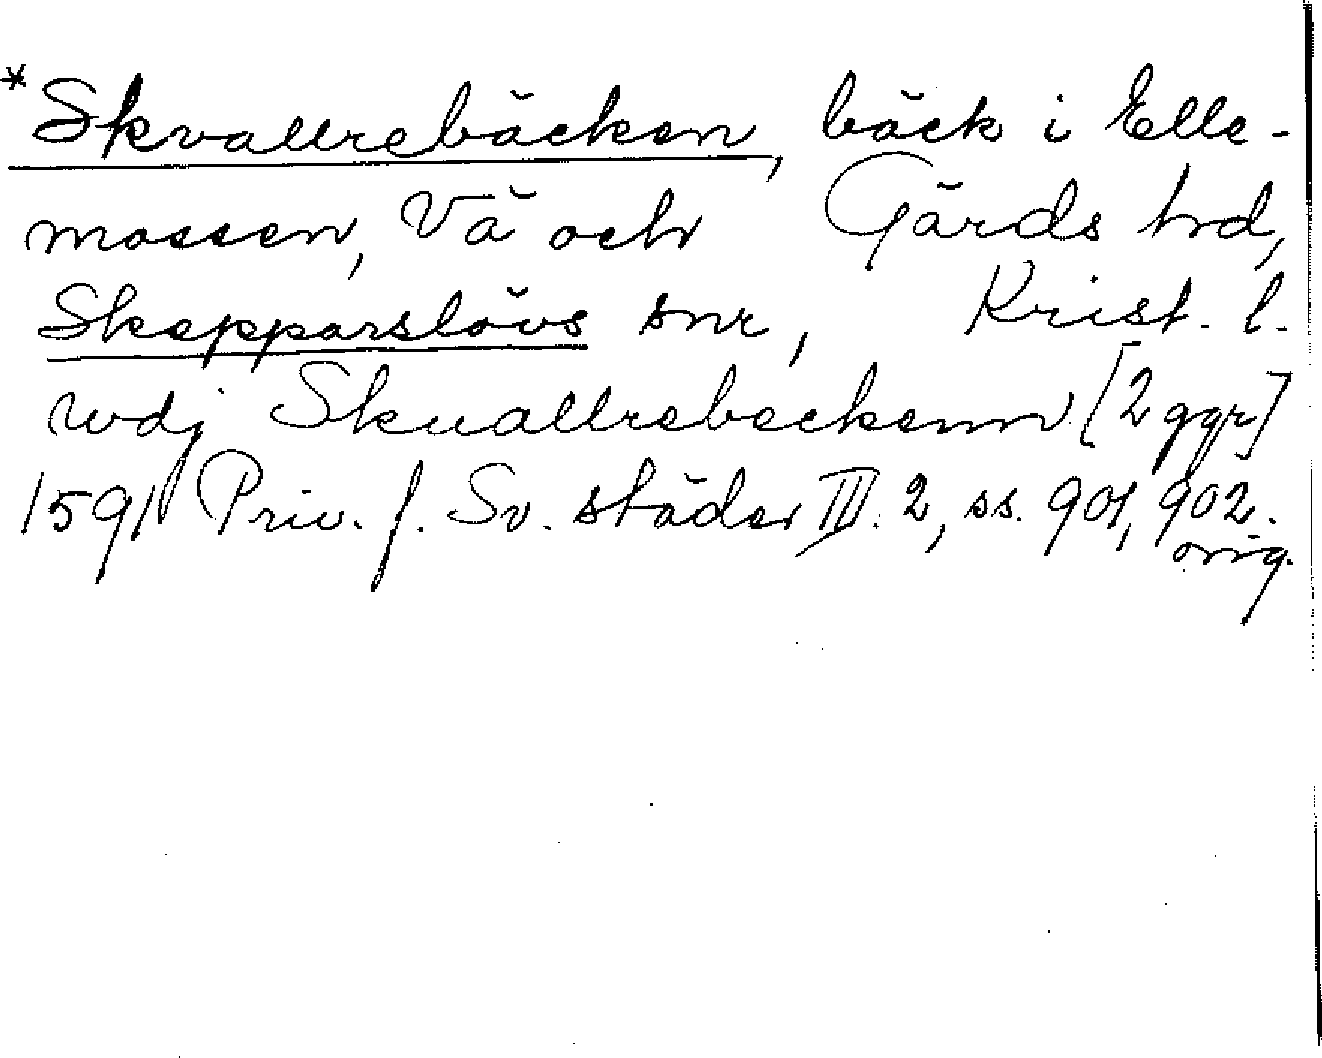 *Skvallrebäcken, bäck i Elle-
mossen, Vä och Gärds hd,
Skepparslövs snr, Krist. l.
wdj Skuallrebeckenn [2 ggr]
1591 Priv. f. Sv. städer III: 2, ss. 901, 902.
orig.